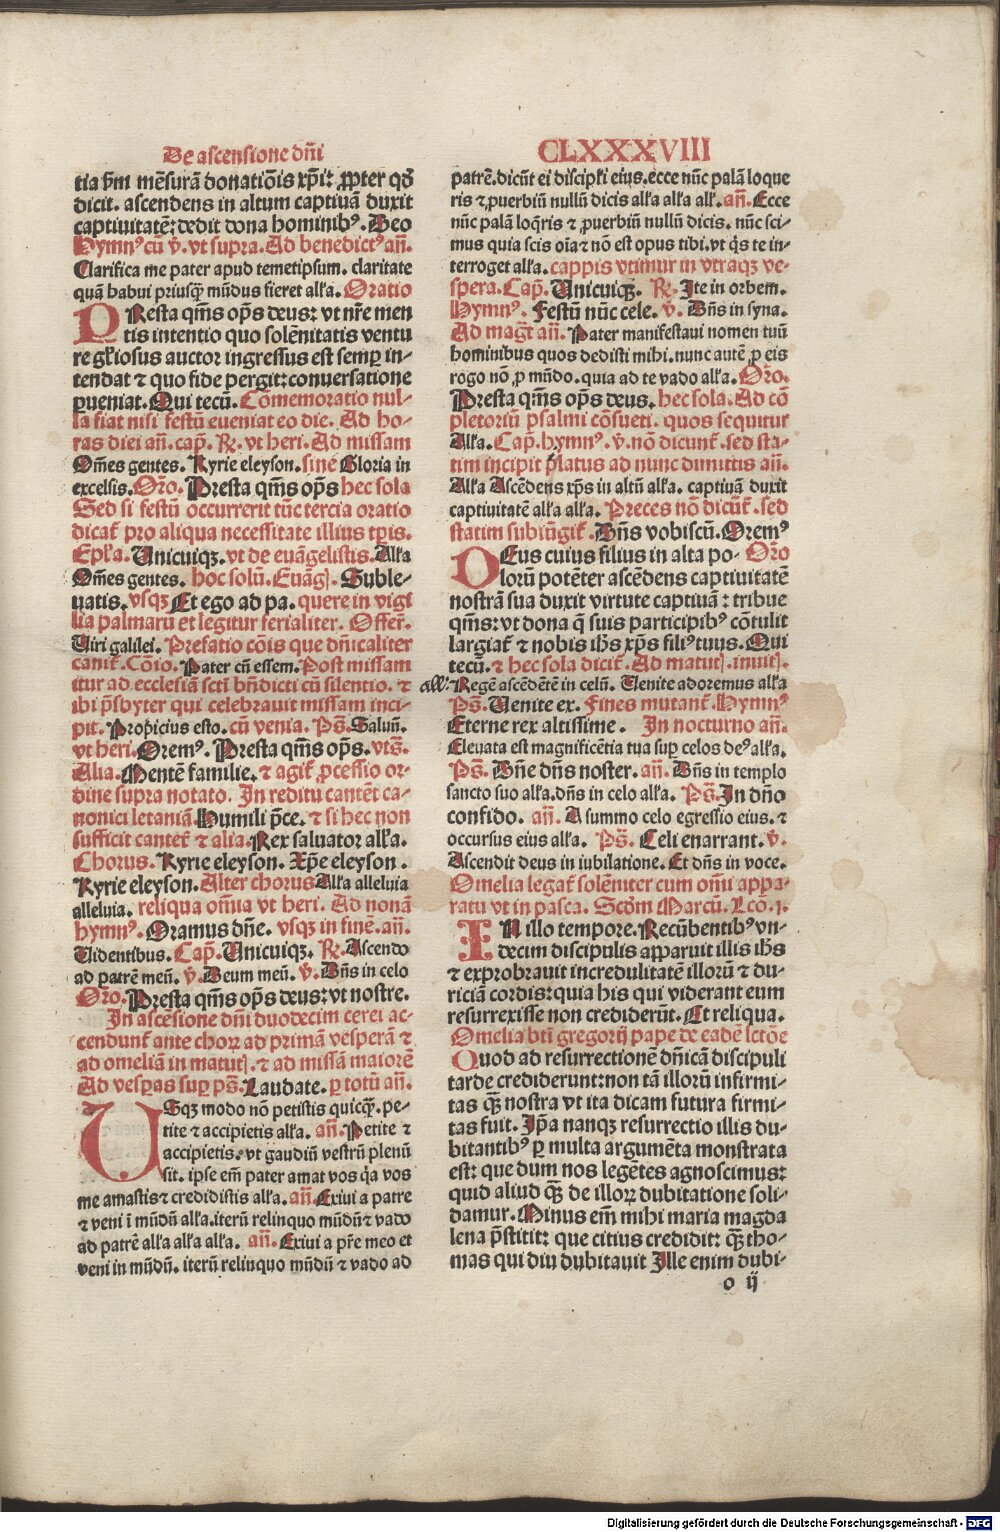 De ascensione dñi
CLXXXXVIII
tia ẜm mēsurā donatiōis xp̄i: ꝓpter qđ
dicit. ascendens in altum captiuā duxit
captiuitatē: dedit dona hominibꝰ. Deo
Hymnꝰ cū ꝟ. vt supra. Ad benedictꝰ añ.
Clarifica me pater apud temetipsum. claritate
quā habui priusqꝫ mūdus fieret alľa. Oratio
PResta qm̄s op̄s deus: vt nr̄e men
tis intentio quo solēnitatis ventu
re gľiosus auctor ingressus est semꝑ in-
tendat ⁊ quo fide pergit: conuersatione
ꝑueniat. Qui tecū. Cōmemoratio nul-
la fiat nisi festū eueniat eo die. Ad ho-
ras diei añ. cap̄. ℞. vt heri. Ad missam
Om̄es gentes. Kyrie eleyson. sine Gloria in
excelsis. Or̄o. Presta qm̄s op̄s hec sola
Sed si festū occurrerit tūc tercia oratio
dicat̄ pro aliqua necessitate illius tp̄is.
Ep̄ľa. Unicuiqꝫ. vt de euāgelistis. Alľa
Om̄es gentes. hoc solū. Euāgꝭ. Suble-
uatis. vsqꝫ Et ego ad pa. quere in vigi
lia palmarū et legitur ferialiter. Offer̄.
Uiri galilei. Prefatio cōis que dn̄icaliter
canit̄. Cōio. Pater cū essem. Post missam
itur ad ecclesiā scti bn̄dicti cū silentio. ⁊
ibi p̄sbyter qui celebrauit missam inci-
pit. Propicius esto. cū venia. Ps̄. Saluū.
vt heri. Oremꝰ. Presta qm̄s op̄s. vts̄.
Alia. Mentē familie. ⁊ agit̄ ꝓcessio or-
dine supra notato. In reditu cantēt ca-
nonici letaniā Humili p̄ce. ⁊ si hec non
sufficit cantet̄ ⁊ alia. Rex saluator alľa.
Chorus. Kyrie eleyson. Xp̄e eleyson.
Kyrie eleyson. Alter chorus Alľa alleluia
alleluia. reliqua om̄ia vt heri. Ad nonā
hymnꝰ. Oramus dn̄e. vsqꝫ in finē. añ.
Uidentibus. Cap̄. Unicuiqꝫ. ℞. Ascendo
ad patrē meū. ꝟ. Deum meū. ꝟ. Dn̄s in celo
Or̄o. Presta qm̄s op̄s deus: vt nostre.
In ascēsione dn̄i duodecim cerei ac-
cendunt̄ ante choꝝ ad primā vesperā ⁊
ad omeliā in matutꝭ. ⁊ ad missā maiorē
Ad vesꝑas suꝑ ps̄. Laudate. ꝑ totū añ.
USqꝫ modo nō petistis quicqꝫ. pe-
tite ⁊ accipietis alľa. añ. Petite ⁊
accipietis. vt gaudiū vestrū plenū
sit. ipse em̄ pater amat vos qa vos
me amastis ⁊ credidistis alľa. añ. Exiui a patre
⁊ veni ī mūdū alľa. iterū relinquo mūdū ⁊ vado
ad patrē alľa alľa alľa. añ. Exiui a pr̄e meo et
veni in mūdū. iterū relinquo mūdū ⁊ vado ad
patrē. dicūt ei discipľi eius. ecce nūc palā loque
ris ⁊ ꝓuerbiū nullū dicis alľa alľa alľ. añ. Ecce
nūc palā loqr̄is ⁊ ꝓuerbiū nullū dicis. nūc sci-
mus quia scis oīa ⁊ nō est opus tibi. vt qs te in-
terroget alľa. cappis vtimur in vtraqꝫ ve-
spera. Cap̄. Unicuiqꝫ. ℞. Ite in orbem.
Hymnꝰ. Festū nūc cele. ꝟ. Dn̄s in syna.
Ad maḡt añ. Pater manifestaui nomen tuū
hominibus quos dedisti mihi. nunc autē ꝓ eis
rogo nō ꝓ mūdo. quia ad te vado alľa. Or̄o.
Presta qm̄s op̄s deus. hec sola. Ad cō
pletoriū psalmi cōsueti. quos sequitur
Alľa. Cap̄. hymnꝰ. ꝟ. nō dicunt̄. sed sta-
tim incipit p̄latus ad nunc dimittis añ.
Alľa Ascēdens xp̄s in altū alľa. captiuā duxit
captiuitatē alľa alľa. Preces nō dicūt̄. sed
statim subiūgit̄. Dn̄s vobiscū. Oremꝰ
DEus cuius filius in alta po- Or̄o
lorū potēter ascēdens captiuitatē
nostrā sua duxit virtute captiuā: tribue
qm̄s: vt dona q̄ suis participibꝰ cōtulit
largiat̄ ⁊ nobis ih̄s xp̄s filiꝰ tuus. Qui
tecū. ⁊ hec sola dicit̄. Ad matutꝭ. inuitꝭ.
all': Regē ascēdētē in celū. Uenite adoremus alľa
Ps̄. Uenite ex. Fines mutant̄. Hymnꝰ
Eterne rex altissime. In nocturno añ.
Eleuata est magnificētia tua suꝑ celos deꝰ alľa.
Ps̄. Dn̄e dn̄s noster. añ. Dn̄s in templo
sancto suo alľa. dn̄s in celo alľa. Ps̄. In dn̄o
confido. añ. A summo celo egressio eius. ⁊
occursus eius alľa. Ps̄. Celi enarrant. ꝟ.
Ascendit deus in iubilatione. Et dn̄s in voce.
Omelia legat̄ solēniter cum omī appa-
ratu vt in pasca. Scd̄m Marcū. Lcō. j.
IN illo tempore. Recūbentibꝰ vn-
decim discipulis apparuit illis ih̄s
⁊ exprobrauit incredulitatē illorū ⁊ du-
riciā cordis: quia his qui viderant eum
resurrexisse non crediderūt. Et reliqua.
Omelia bt̄i gregorij pape de eadē lctōe
Quod ad resurrectionē dn̄icā discipuli
tarde crediderunt: non tā illorū infirmi-
tas qꝫ nostra vt ita dicam futura firmi-
tas fuit. Ip̄a nanqꝫ resurrectio illis du-
bitantibꝰ ꝑ multa argumēta monstrata
est: que dum nos legētes agnoscimus:
quid aliud qꝫ de illoꝝ dubitatione soli-
damur. Minus em̄ mihi maria magda
lena p̄stitit: que citius credidit: qꝫ tho-
mas qui diu dubitauit Ille enim dubi-
o ij
Digitalisierung gefördert durch die Deutsche Forschungsgemeinschaft - DFG